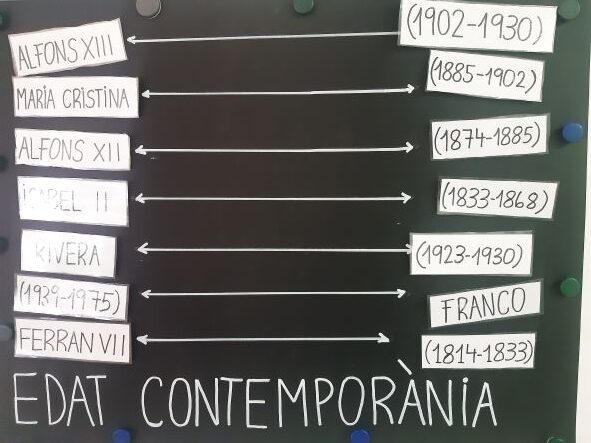 ALFONS XIII (1902-1930)
MARIA CRISTINA (1885-1902)
ALFONS XII (1874-1885)
ISABEL II (1833-1868)
RIVERA (1923-1930)
(1939-1975) FRANCO
FERRAN VII (1814-1833)
EDAT CONTEMPORÀNIA